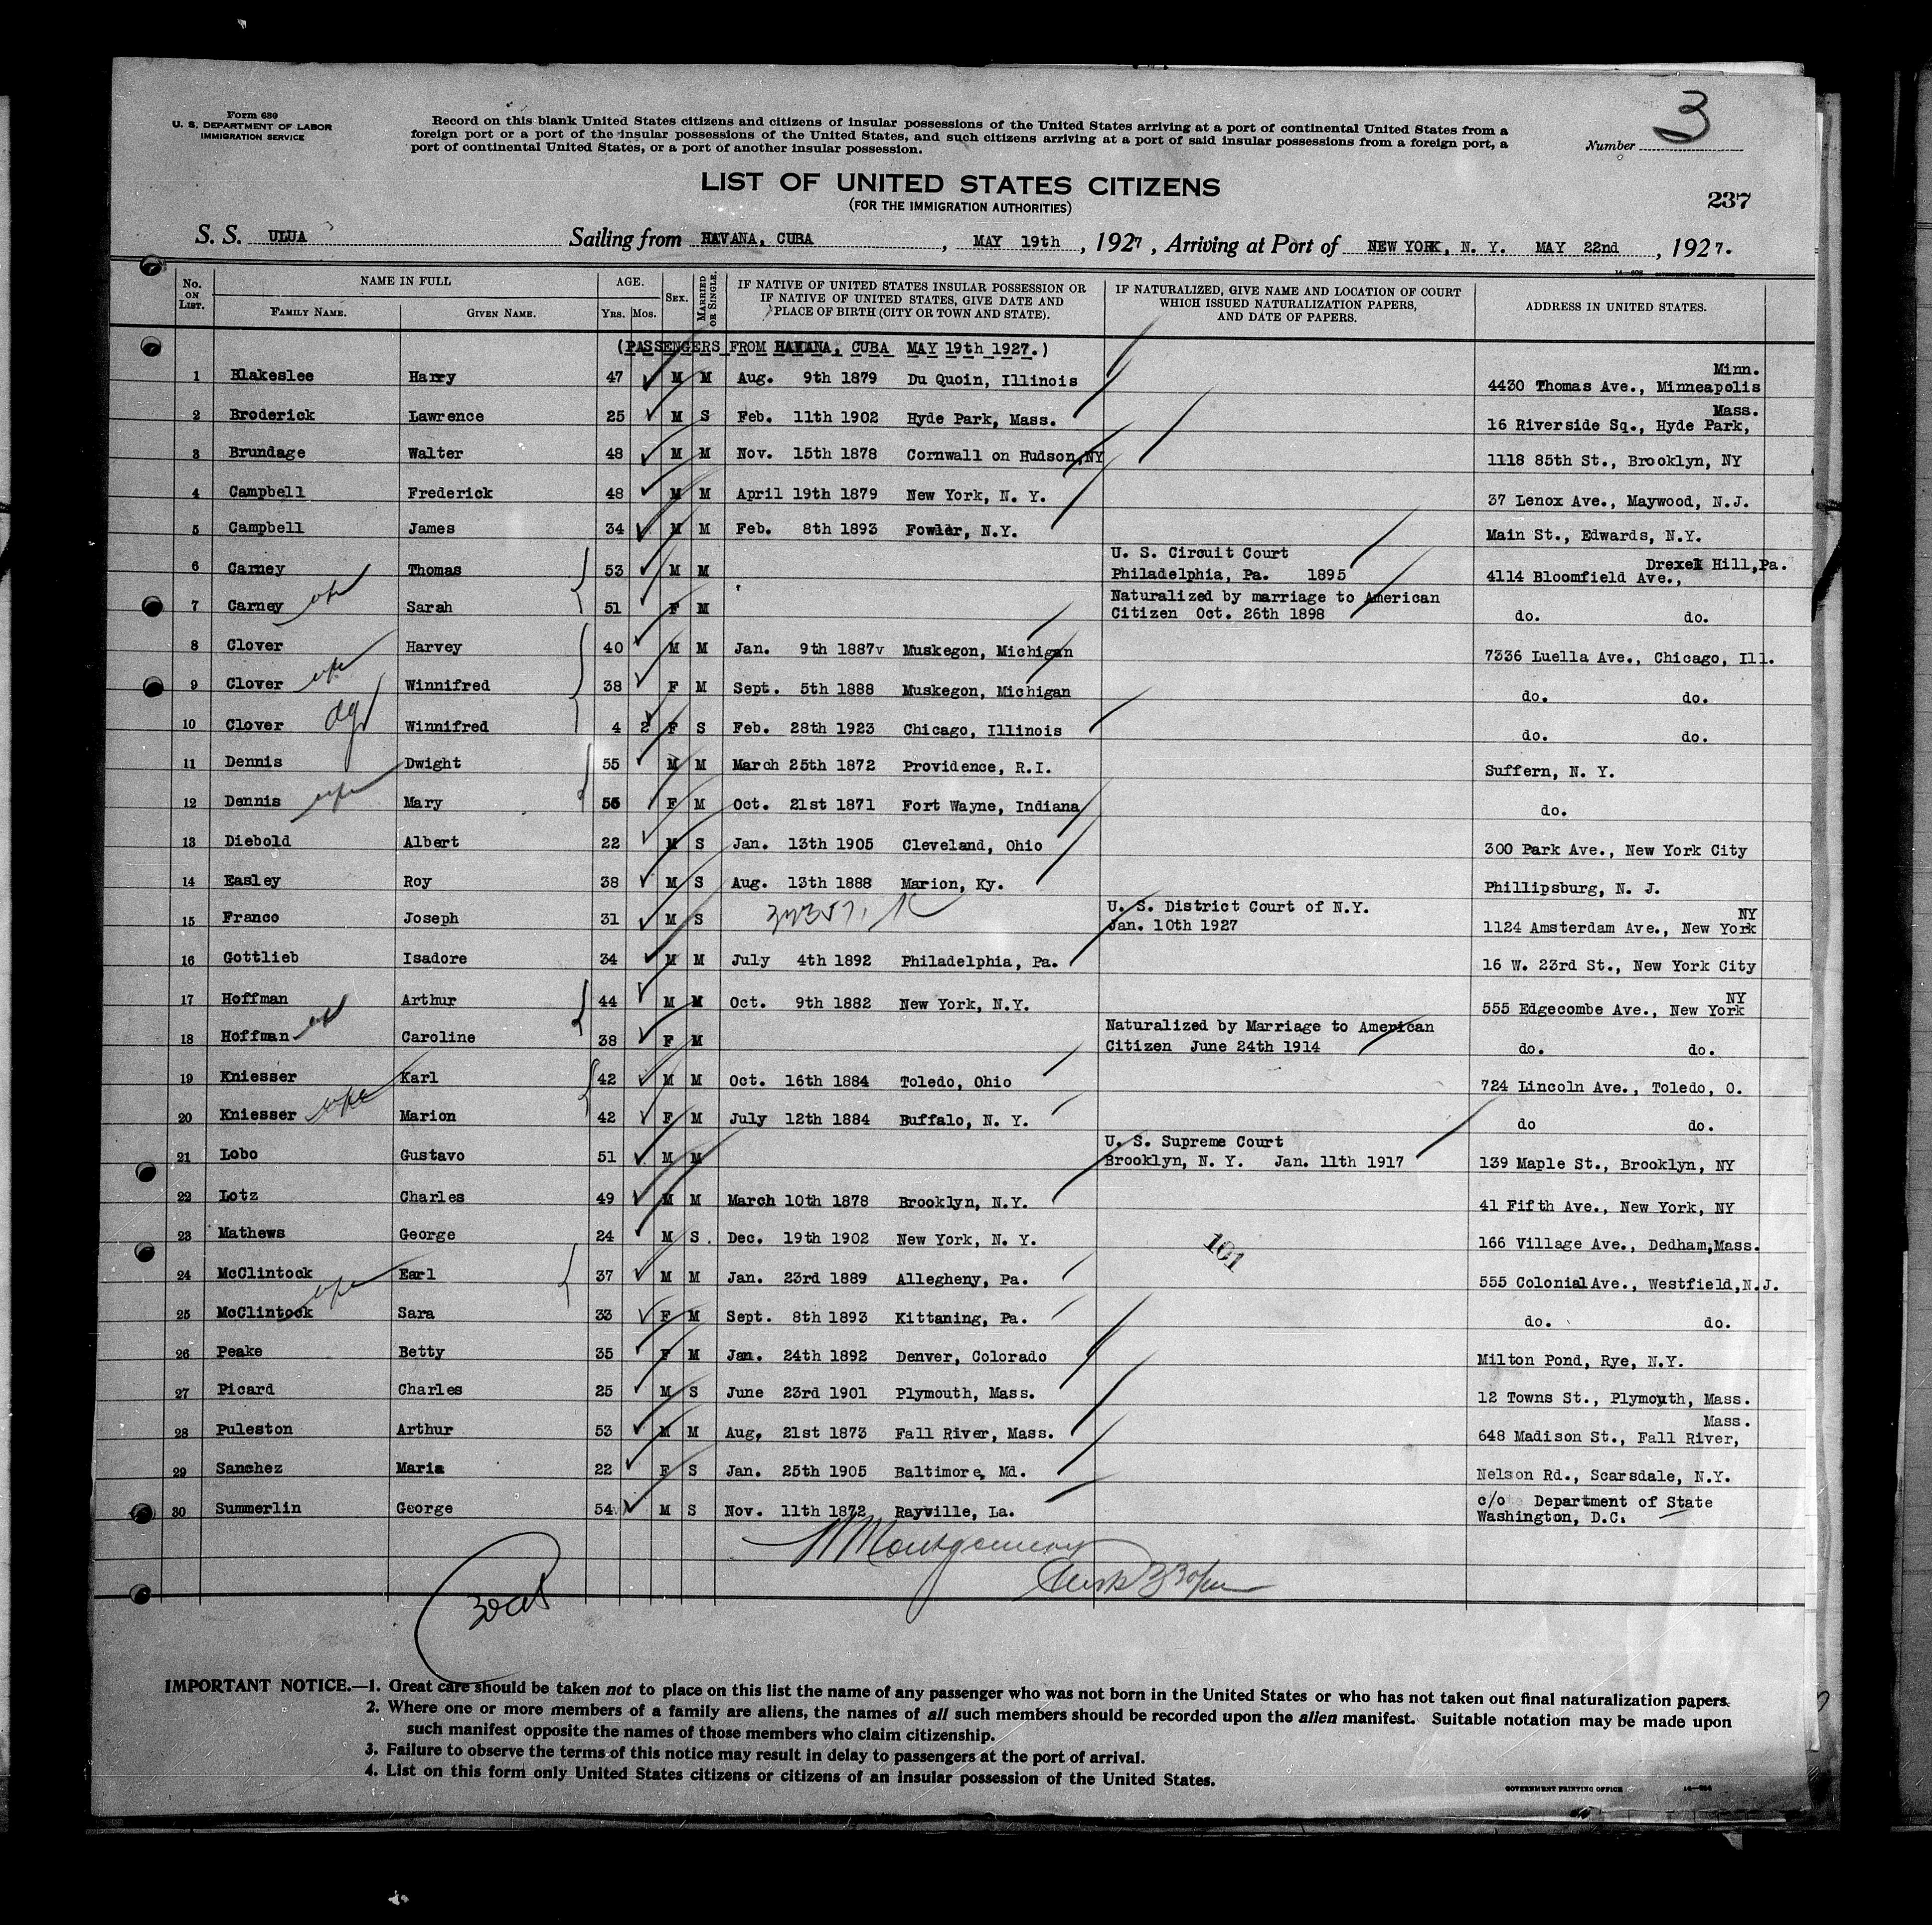 Form 630
U. S. DEPARTMENT OF LABOR
IMMIGRATION SERVICE
Record on this blank United States citizens and citizens of insular possessions of the United States arriving at a port of continental United States from a
foreign port or a port of the insular possessions of the United States, and such citizens arriving at a port of said insular possessions from a foreign port, a
port of continental United States, or a port of another insular possession.
Number 3
LIST OF UNITED STATES CITIZENS
(FOR THE IMMIGRATION AUTHORITIES)
237
S. S. ULUA Sailing from HAVANA, CUBA, MAY 19th, 1927, Arriving at Port of NEW YORK, N. Y. MAY 22nd, 1927.
No. ON LIST. NAME IN FULL FAMILY NAME. GIVEN NAME. AGE. Yrs. Mos. SEX. MARRIED OR SINGLE. IF NATIVE OF UNITED STATES INSULAR POSSESSION OR IF NATIVE OF UNITED STATES, GIVE DATE AND PLACE OF BIRTH (CITY OR TOWN AND STATE). IF NATURALIZED, GIVE NAME AND LOCATION OF COURT WHICH ISSUED NATURALIZATION PAPERS, AND DATE OF PAPERS. ADDRESS IN UNITED STATES.
(PASSENGERS FROM HAVANA, CUBA MAY 19th 1927.)
1 Blakeslee Harry 47 M M Aug. 9th 1879 Du Quoin, Illinois 4430 Thomas Ave., Minneapolis Minn.
2 Broderick Lawrence 25 M S Feb. 11th 1902 Hyde Park, Mass. 16 Riverside Sq., Hyde Park, Mass.
3 Brundage Walter 48 M M Nov. 15th 1878 Cornwall on Hudson, NY 1118 85th St., Brooklyn, NY
4 Campbell Frederick 48 M M April 19th 1879 New York, N. Y. 37 Lenox Ave., Maywood, N.J.
5 Campbell James 34 M M Feb. 8th 1893 Fowler, N.Y. Main St., Edwards, N.Y.
6 Carney Thomas 53 M M U. S. Circuit Court Philadelphia, Pa. 1895 4114 Bloomfield Ave., Drexel Hill, Pa.
7 Carney Sarah 51 F M Naturalized by marriage to American Citizen Oct. 26th 1898 do. do.
8 Clover Harvey 40 M M Jan. 9th 1887 Muskegon, Michigan 7336 Luella Ave., Chicago, Ill.
9 Clover Winnifred 38 F M Sept. 5th 1888 Muskegon, Michigan do. do.
10 Clover Winnifred 4 2 F S Feb. 28th 1923 Chicago, Illinois do. do.
11 Dennis Dwight 55 M M March 25th 1872 Providence, R.I. Suffern, N. Y.
12 Dennis Mary 55 F M Oct. 21st 1871 Fort Wayne, Indiana do.
13 Diebold Albert 22 M S Jan. 13th 1905 Cleveland, Ohio 300 Park Ave., New York City
14 Easley Roy 38 M S Aug. 13th 1888 Marion, Ky. Phillipsburg, N. J.
15 Franco Joseph 31 M S U. S. District Court of N.Y. Jan. 10th 1927 1124 Amsterdam Ave., New York NY
16 Gottlieb Isadore 34 M M July 4th 1892 Philadelphia, Pa. 16 W. 23rd St., New York City
17 Hoffman Arthur 44 M M Oct. 9th 1882 New York, N.Y. 555 Edgecombe Ave., New York NY
18 Hoffman Caroline 38 F M Naturalized by Marriage to American Citizen June 24th 1914 do. do.
19 Kniesser Karl 42 M M Oct. 16th 1884 Toledo, Ohio 724 Lincoln Ave., Toledo, O.
20 Kniesser Marion 42 F M July 12th 1884 Buffalo, N. Y. do do.
21 Lobo Gustavo 51 M M U. S. Supreme Court Brooklyn, N. Y. Jan. 11th 1917 139 Maple St., Brooklyn, NY
22 Lotz Charles 49 M M March 10th 1878 Brooklyn, N.Y. 41 Fifth Ave., New York, NY
23 Mathews George 24 M S Dec. 19th 1902 New York, N. Y. 101 166 Village Ave., Dedham, Mass.
24 McClintock Earl 37 M M Jan. 23rd 1889 Allegheny, Pa. 555 Colonial Ave., Westfield, N.J.
25 McClintock Sara 33 F M Sept. 8th 1893 Kittaning, Pa. do. do.
26 Peake Betty 35 F M Jan. 24th 1892 Denver, Colorado Milton Pond, Rye, N.Y.
27 Picard Charles 25 M S June 23rd 1901 Plymouth, Mass. 12 Towns St., Plymouth, Mass.
28 Puleston Arthur 53 M M Aug. 21st 1873 Fall River, Mass. 648 Madison St., Fall River, Mass.
29 Sanchez Maria 22 F S Jan. 25th 1905 Baltimore, Md. Nelson Rd., Scarsdale, N.Y.
30 Summerlin George 54 M S Nov. 11th 1872 Rayville, La. c/o Department of State Washington, D.C.
Montgomery
IMPORTANT NOTICE.—1. Great care should be taken not to place on this list the name of any passenger who was not born in the United States or who has not taken out final naturalization papers.
2. Where one or more members of a family are aliens, the names of all such members should be recorded upon the alien manifest. Suitable notation may be made upon
such manifest opposite the names of those members who claim citizenship.
3. Failure to observe the terms of this notice may result in delay to passengers at the port of arrival.
4. List on this form only United States citizens or citizens of an insular possession of the United States.
GOVERNMENT PRINTING OFFICE